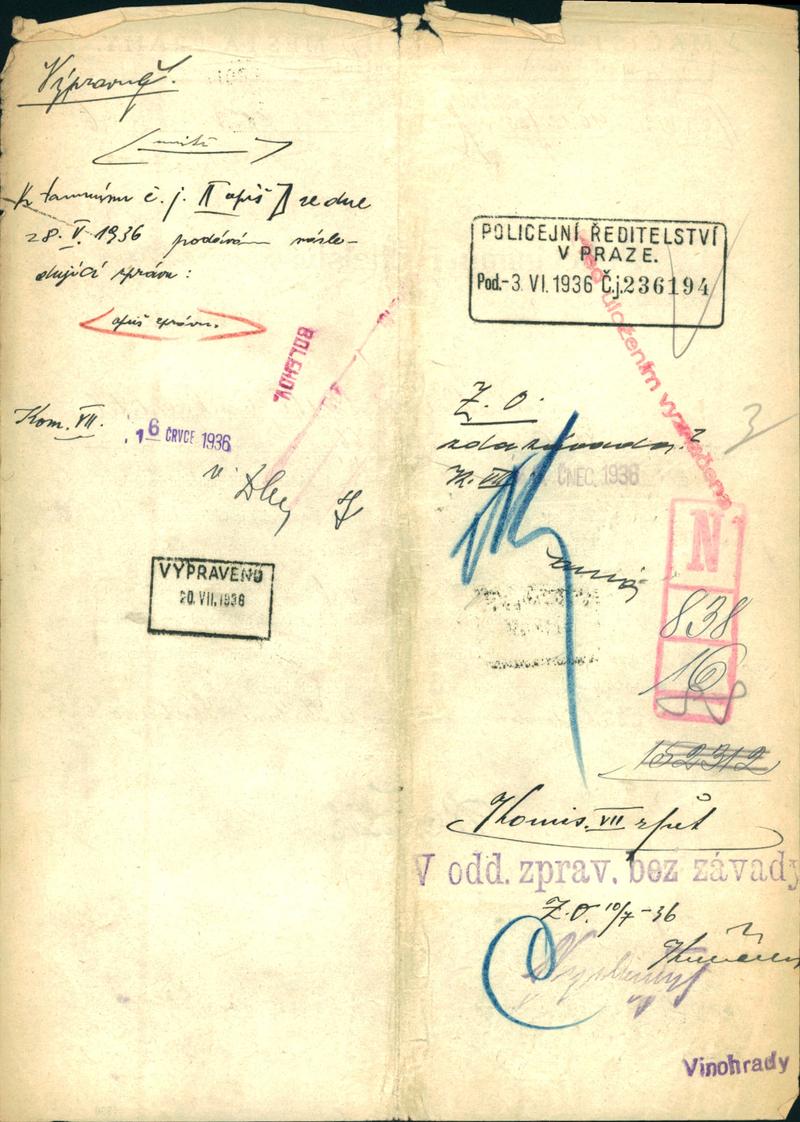 Výpravně.
K tamnímu č. j. [opiš] ze dne
28. V. 1936 podávám násle-
dující zprávu:
opiš zprávu.
BOLEHOV.
Kom. VII.
16 ČRVCE 1936
VYPRAVENO
20. VII. 1936
POLICEJNÍ ŘEDITELSTVÍ
V PRAZE.
Pod. -3 VI. 1936 Č.j. 236194
před uložením vyznačena
Z. O.
zda závada?
K. VII
ČNEC. 1936
3
N
838
16
152312
Komis. VII zpět
V odd. zprav. bez závady
Z.O. 10/7-36
Vinohrady